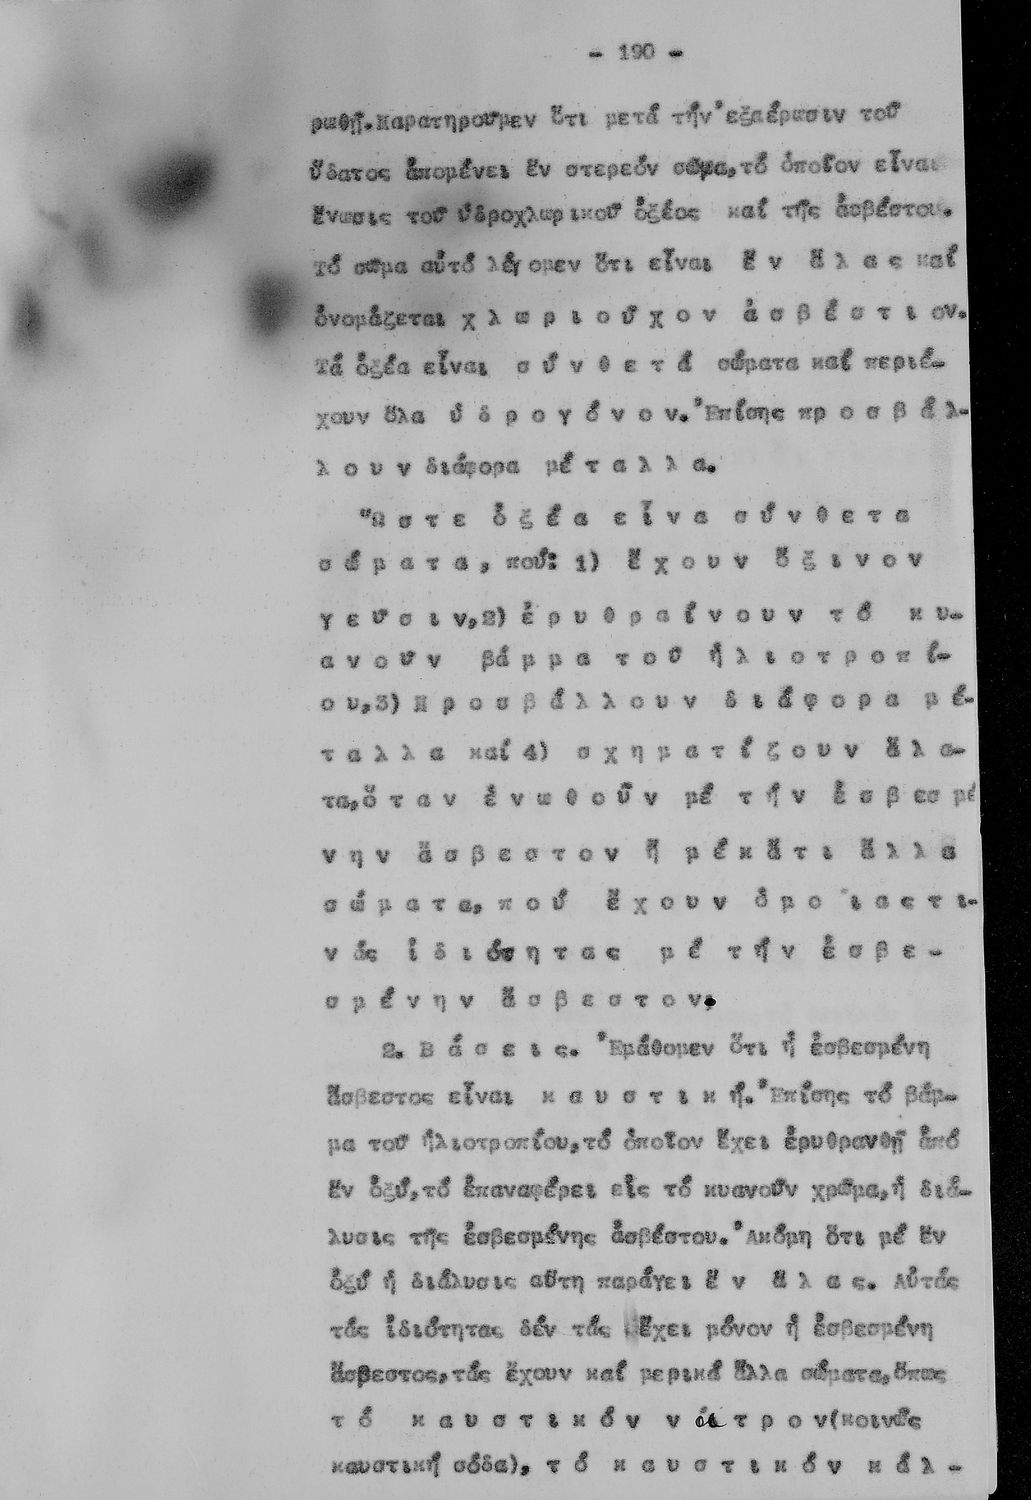 - 190 -
ρωθῇ. Παρατηροῦμεν ὅτι μετά τήν ἐξαέρωσιν τοῦ
ὕδατος ἀπομένει ἕν στερεόν σῶμα, τό ὁποῖον εἶναι
ἕνωσις τοῦ ὑδροχλωρικοῦ ὀξέος καί τῆς ἀσβέστου.
Τό σῶμα αὐτό λέγομεν ὅτι εἶναι ἕ ν ἅ λ α ς καί
ὀνομάζεται χ λ ω ρ ι ο ῦ χ ο ν ἀ σ β έ σ τ ι ον.
Τά ὀξέα εἶναι σ ύ ν θ ε τ ά σώματα καί περιέ-
χουν ὅλα ὑ δ ρ ο γ ό ν ο ν. Ἐπίσης πρ ο σ β ά λ-
λ ο υ ν διάφορα μέ τ α λ λ α.
Ὥ σ τ ε ὀ ξ έ α ε ἶ ν α σ ύ ν θ ε τ α
σ ώ μ α τ α, πού: 1) ἔ χ ο υ ν ὄ ξ ι ν ο ν
γ ε ῦ σ ι ν, 2) ἐ ρ υ θ ρ α ί ν ο υ ν τ ό κ υ-
α ν ο ῦ ν βά μ μ α τ ο ῦ ἡ λ ι ο τ ρ ο π ί-
ο υ, 3) Π ρ ο σ β ά λ λ ο υ ν δ ι ά φ ο ρ α μ έ-
τ α λ λ α καί 4) σ χ η μ α τ ί ζ ο υ ν ἅ λ α-
τα, ὅ τ α ν ἑ ν ω θ ο ῦ ν μέ τ ή ν ἐ σ β εσ μέ
ν η ν ἄ σ β ε σ τ ο ν ἤ μ έ κ ἄ τ ι ἄ λ λ α
σ ώ μ α τ α, π ο ύ ἔ χ ο υ ν ὁ μ ο ι α ς τ ι-
ν άς ἰ δ ι ότ η τ α ς μ έ τ ή ν ἐ σ β ε -
σ μ έ ν η ν ἄ σ β ε σ τ ο ν.
2. Β ά σ ε ι ς. Ἐμάθομεν ὅτι ἡ ἐσβεσμένη
ἄσβεστος εἶναι κ α υ σ τ ι κ ή. Ἐπίσης τό βάμ-
μα τοῦ ἡλιοτροπίου, τό ὁποῖον ἔχει ἐρυθρανθῆ ἀπό
ἕν ὀξύ, τό ἐπαναφέρει εἰς τό κυανοῦν χρῶμα, ἡ διά-
λυσις τῆς ἐσβεσμένης ἀσβέστου. Ἀκόμη ὅτι μέ ἕν
ὀξύ ἡ διάλυσις αὕτη παράγει ἕ ν ἅ λ α ς. Αὐτάς
τάς ἰδιότητας δέν τάς ἔχει μόνον ἡ ἐσβεσμένη
ἄσβεστος, τάς ἔχουν καί μερικά ἄλλα σώματα, ὅπως
τ ό κ α υ σ τ ι κ ό ν ν ά τ ρ ο ν (κοινῶς
καυστική σόδα), τ ό κ α υ σ τ ι κ ό ν κ ά λ -